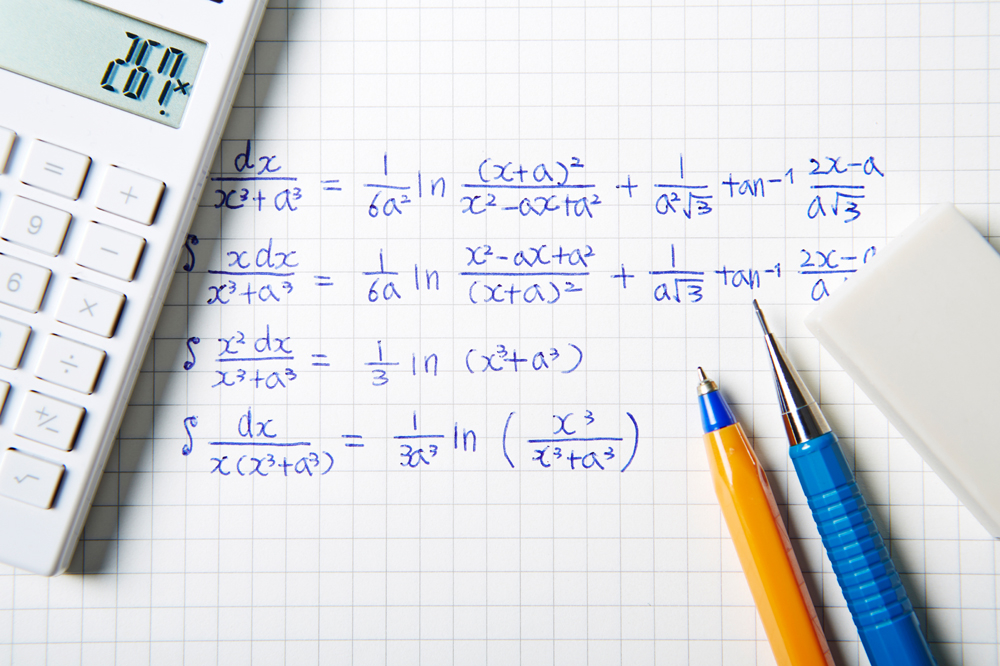 dx/(x³+a³) = 1/(6a²) ln (x+a)²/(x²-ax+a²) + 1/(a²√3) tan-¹ (2x-a)/(a√3)
∫ x dx/(x³+a³) = 1/(6a) ln (x²-ax+a²)/(x+a)² + 1/(a√3) tan-¹ 2x-
∫ x² dx/(x³+a³) = 1/3 ln (x³+a³)
∫ dx/(x(x³+a³)) = 1/(3a³) ln (x³/(x³+a³))
= +
9 -
6 ×
÷
+/-
√